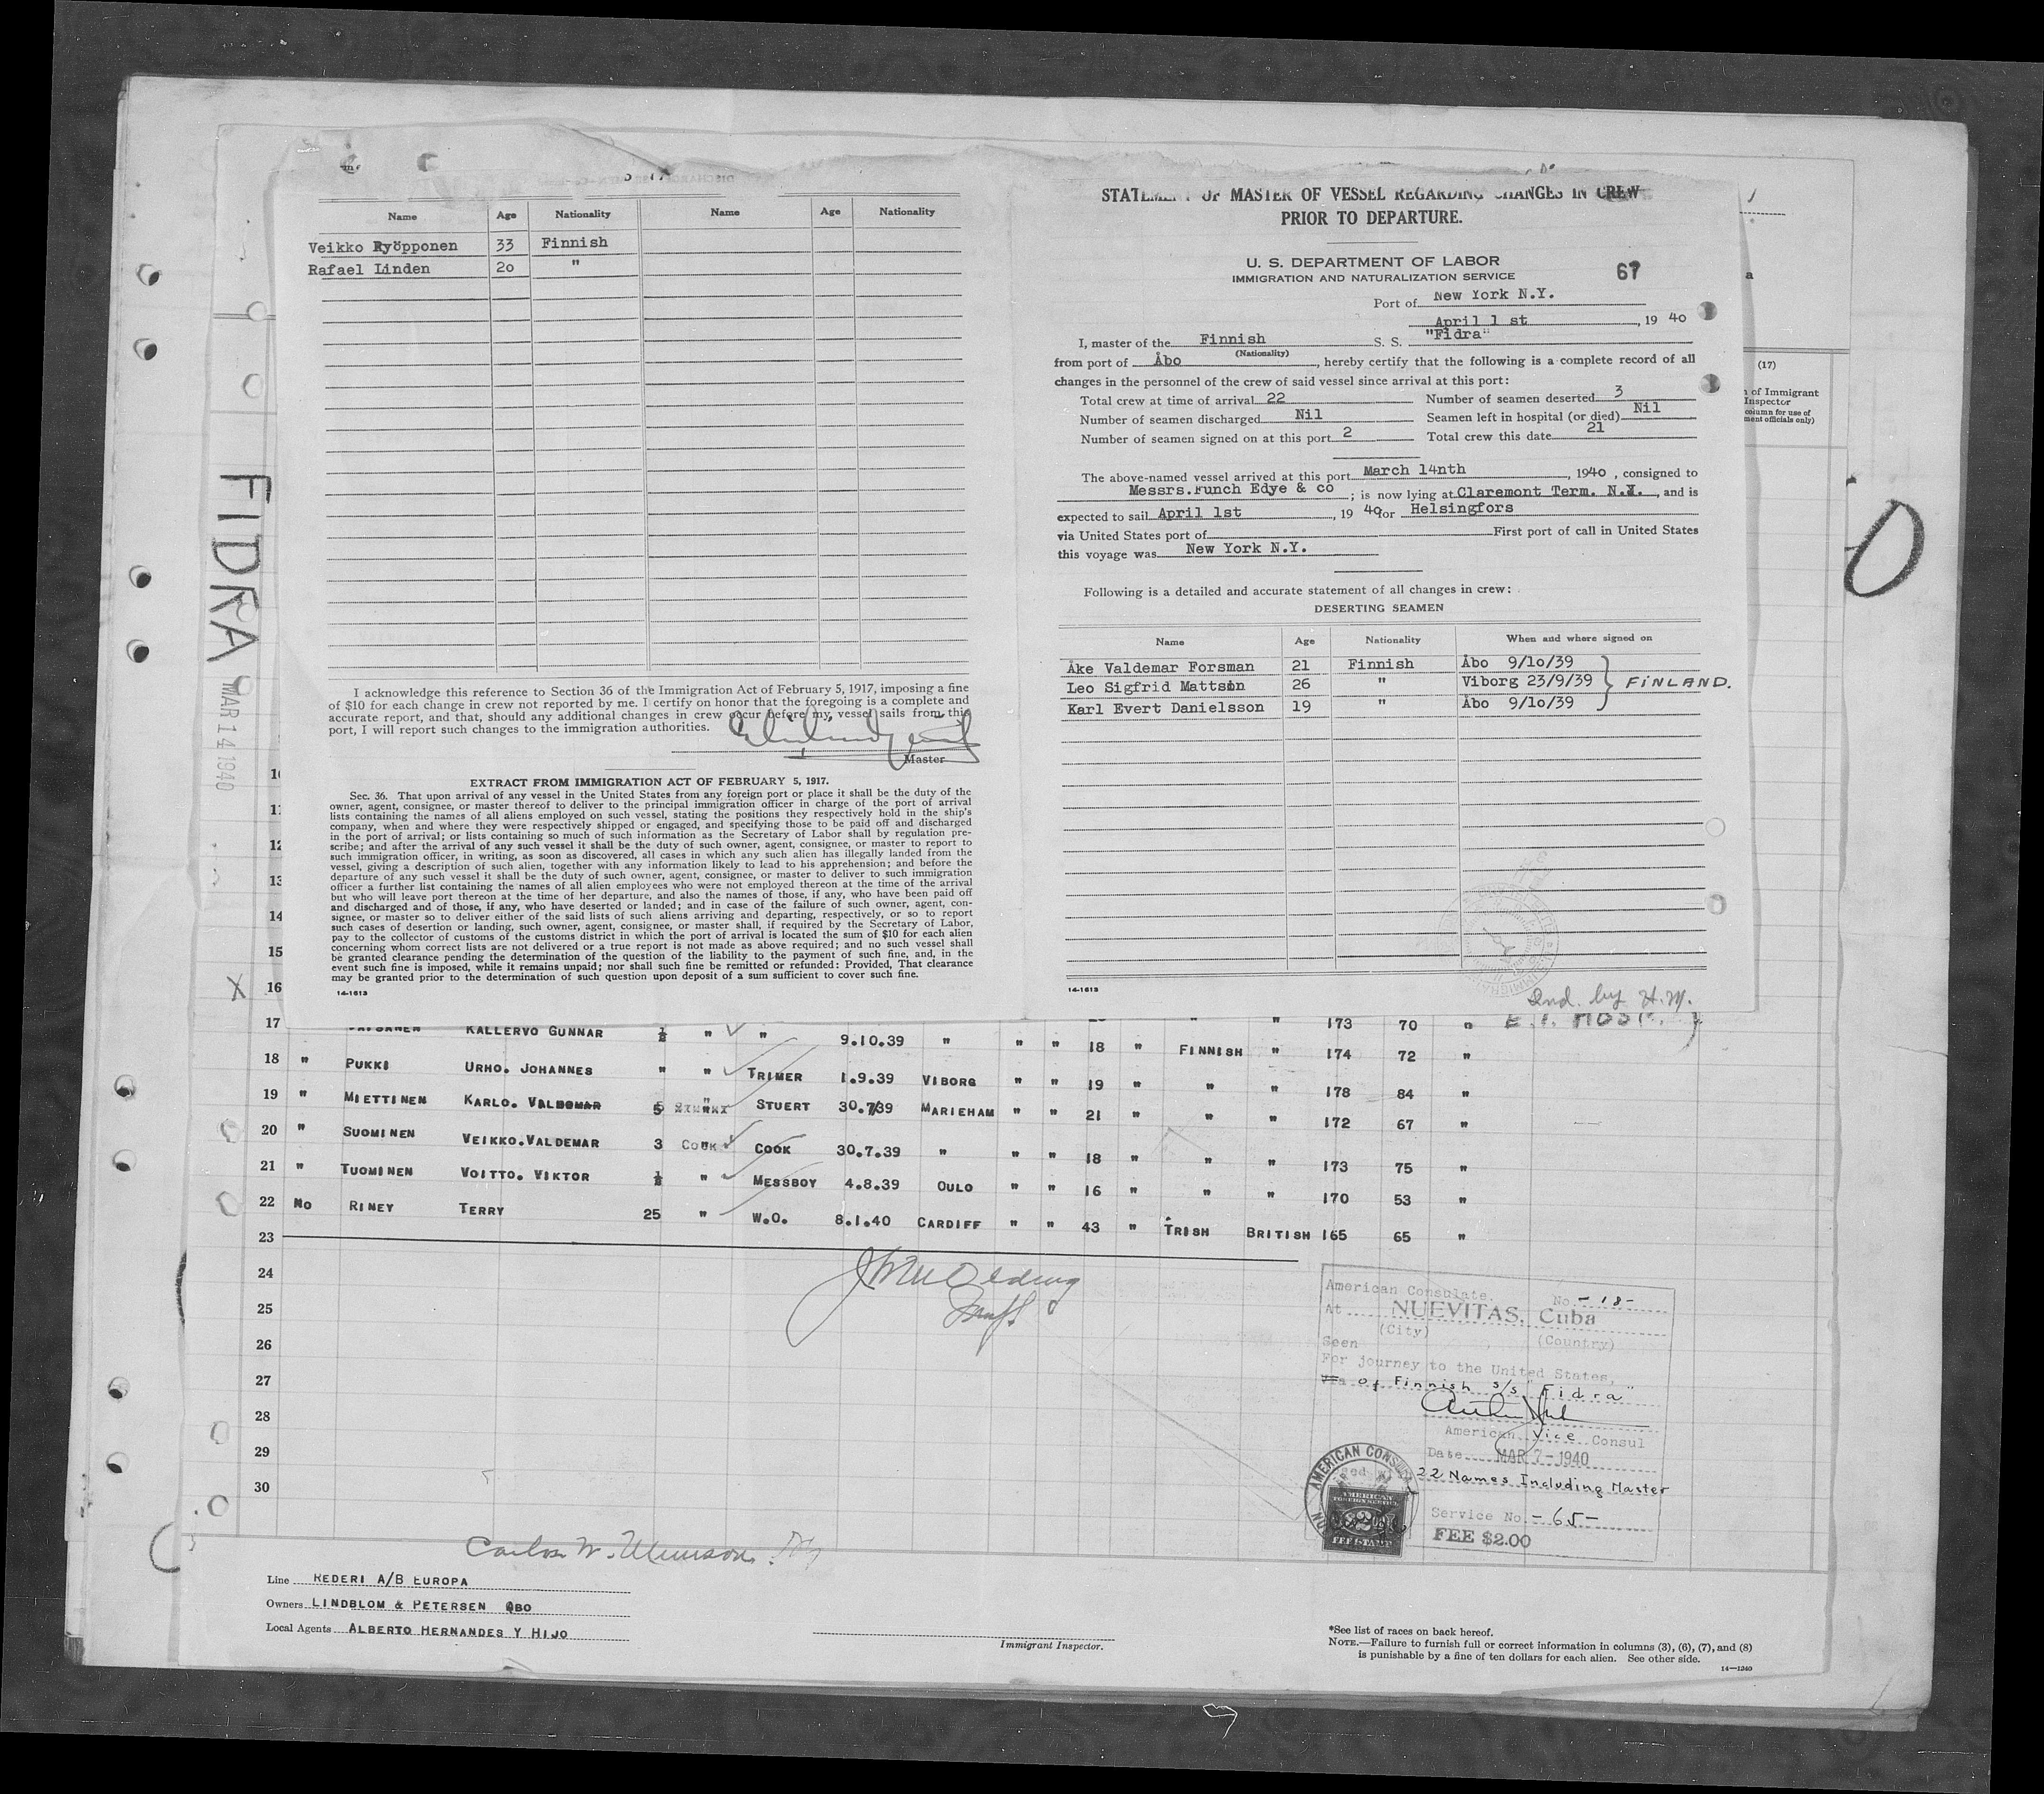 Name Age Nationality Name Age Nationality
Veikko Ryöpponen 33 Finnish
Rafael Linden 20 "
I acknowledge this reference to Section 36 of the Immigration Act of February 5, 1917, imposing a fine
of $10 for each change in crew not reported by me. I certify on honor that the foregoing is a complete and
accurate report, and that, should any additional changes in crew occur before my vessel sails from this
port, I will report such changes to the immigration authorities.
Master
EXTRACT FROM IMMIGRATION ACT OF FEBRUARY 5, 1917.
Sec. 36. That upon arrival of any vessel in the United States from any foreign port or place it shall be the duty of the
owner, agent, consignee, or master thereof to deliver to the principal immigration officer in charge of the port of arrival
lists containing the names of all aliens employed on such vessel, stating the positions they respectively hold in the ship's
company, when and where they were respectively shipped or engaged, and specifying those to be paid off and discharged
in the port of arrival; or lists containing so much of such information as the Secretary of Labor shall by regulation pre-
scribe; and after the arrival of any such vessel it shall be the duty of such owner, agent, consignee, or master to report to
such immigration officer, in writing, as soon as discovered, all cases in which any such alien has illegally landed from the
vessel, giving a description of such alien, together with any information likely to lead to his apprehension; and before the
departure of any such vessel it shall be the duty of such owner, agent, consignee, or master to deliver to such immigration
officer a further list containing the names of all alien employees who were not employed thereon at the time of the arrival
but who will leave port thereon at the time of her departure, and also the names of those, if any, who have been paid off
and discharged and of those, if any, who have deserted or landed; and in case of the failure of such owner, agent, con-
signee, or master so to deliver either of the said lists of such aliens arriving and departing, respectively, or so to report
such cases of desertion or landing, such owner, agent, consignee, or master shall, if required by the Secretary of Labor,
pay to the collector of customs of the customs district in which the port of arrival is located the sum of $10 for each alien
concerning whom correct lists are not delivered or a true report is not made as above required; and no such vessel shall
be granted clearance pending the determination of the question of the liability to the payment of such fine, and, in the
event such fine is imposed, while it remains unpaid; nor shall such fine be remitted or refunded: Provided, That clearance
may be granted prior to the determination of such question upon deposit of a sum sufficient to cover such fine.
14-1613
STATEMENT OF MASTER OF VESSEL REGARDING CHANGES IN CREW
PRIOR TO DEPARTURE.
U. S. DEPARTMENT OF LABOR
IMMIGRATION AND NATURALIZATION SERVICE
67
Port of New York N.Y.
April 1 st, 19 40
I, master of the Finnish S. S. "Fidra"
(Nationality)
from port of Åbo, hereby certify that the following is a complete record of all
changes in the personnel of the crew of said vessel since arrival at this port:
Total crew at time of arrival 22 Number of seamen deserted 3
Number of seamen discharged Nil Seamen left in hospital (or died) Nil
Number of seamen signed on at this port 2 Total crew this date 21
The above-named vessel arrived at this port March 14nth, 1940, consigned to
Messrs. Funch Edye & co; is now lying at Claremont Term. N.Y., and is
expected to sail April 1st, 19 40 for Helsingfors
via United States port of First port of call in United States
this voyage was New York N.Y.
Following is a detailed and accurate statement of all changes in crew:
DESERTING SEAMEN
Name Age Nationality When and where signed on
Åke Valdemar Forsman 21 Finnish Åbo 9/10/39
Leo Sigfrid Mattson 26 " Viborg 23/9/39 } FINLAND.
Karl Evert Danielsson 19 " Åbo 9/10/39
14-1613
2nd. by H.M.
(17)
of Immigrant
Inspector
column for use of
ment officials only)
FIDRA
MAR 14 1940
10
11
12
13
14
15
X 16
17 KALLERVO GUNNAR ½ " " 9.10.39 " " " 18 " FINNISH " 173 70 "
18 " PUKKI URHO. JOHANNES " " TRIMER 1.9.39 VIBORG " " 19 " " " 174 72 "
19 " MIETTINEN KARLO. VALDEMAR 5 " STUERT 30.7/39 MARIEHAM " " 21 " " " 178 84 "
20 " SUOMINEN VEIKKO.VALDEMAR 3 COOK COOK 30.7.39 " " " 18 " " " 172 67 "
21 " TUOMINEN VOITTO. VIKTOR ½ " MESSBOY 4.8.39 OULO " " 16 " " " 173 75 "
170 53 "
22 No RINEY TERRY 25 " W.O. 8.1.40 CARDIFF " " 43 " IRISH BRITISH 165 65 "
23
24
25
26
27
28
29
30
American Consulate. No. -18-
At NUEVITAS, Cuba
(City) (Country)
Seen
For journey to the United States,
of Finnish s/s "Fidra"
American Vice Consul
Date MAR 7-1940
22 Names Including Master
Service No. -65-
FEE $2.00
AMERICAN CONSU
AMERICAN
FOREIGN SERVICE
FEE STAMP
Carlos W. Munson
Line REDERI A/B EUROPA
Owners LINDBLOM & PETERSEN ABO
Local Agents ALBERTO HERNANDES Y HIJO
Immigrant Inspector.
*See list of races on back hereof.
NOTE.—Failure to furnish full or correct information in columns (3), (6), (7), and (8)
is punishable by a fine of ten dollars for each alien. See other side.
14—1240